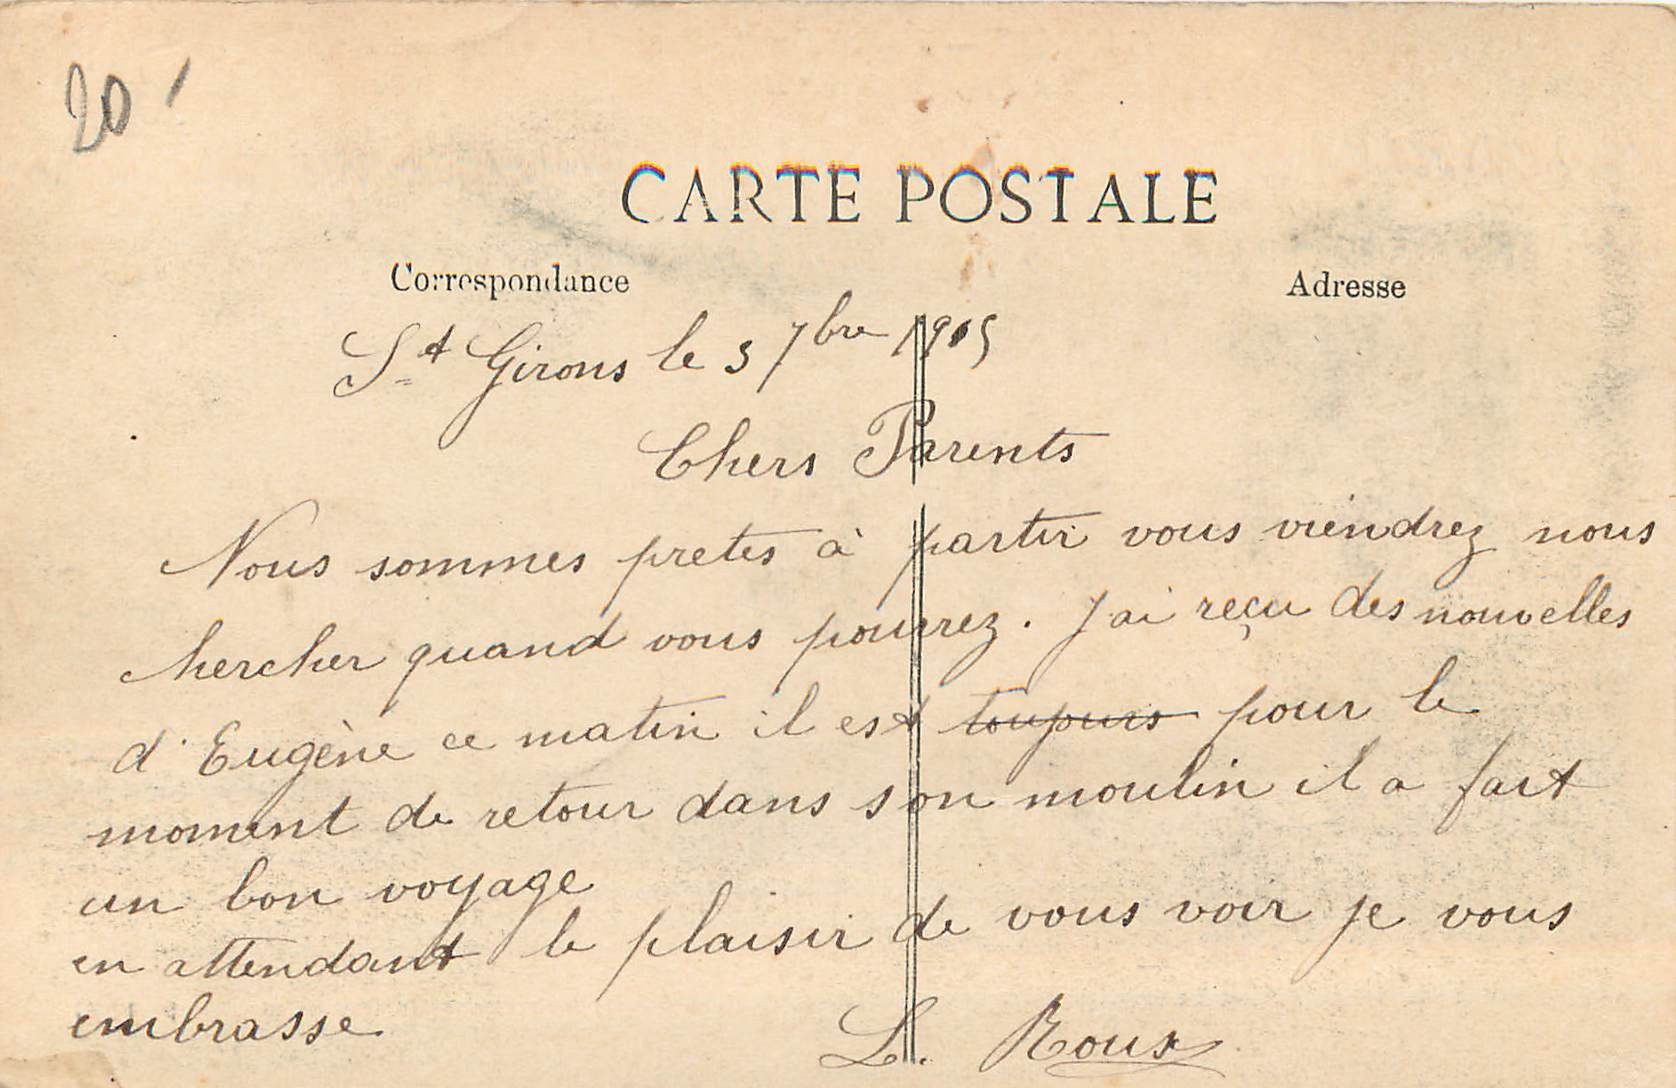 20
CARTE POSTALE
Correspondance Adresse
St Girons le 3 7bre 1915
Chers Parents
Nous sommes pretes à partir vous viendrez nous
chercher quand vous pourrez. J'ai reçu des nouvelles
d'Eugène ce matin il est toujours pour le
moment de retour dans son moulin il a fait
un bon voyage
en attendant le plaisir de vous voir je vous
embrasse
L. Roux